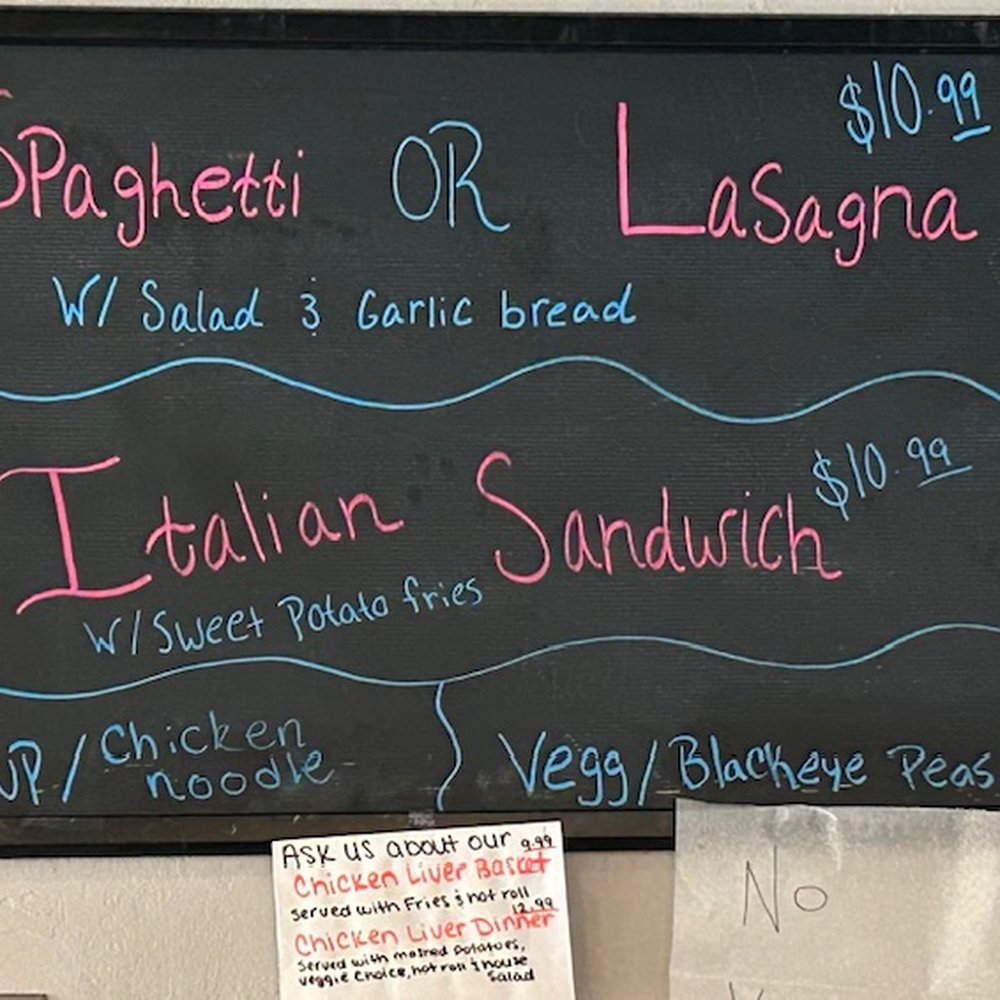 $10.99
SPaghetti OR Lasagna
W/ Salad & Garlic bread
Italian Sandwich $10.99
W/ Sweet Potato fries
UP/ Chicken noodle
Vegg/ Blackeye Peas
ASK us about our 9.99
Chicken Liver Basket
served with Fries & hot roll
12.99
Chicken Liver Dinner
served with mashed potatoes,
veggie choice, hot roll & house
salad
No